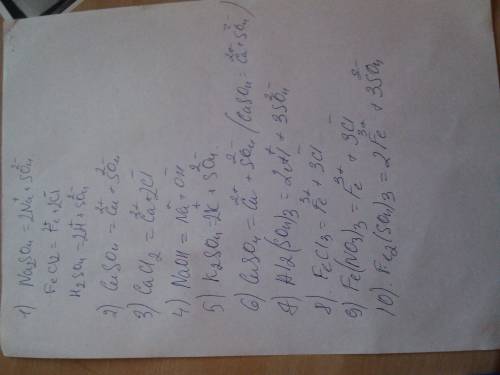 1) Na₂SO₄ = 2Na⁺ + SO₄²⁻
FeCl₂ = Fe²⁺ + 2Cl⁻
H₂SO₄ - 2H⁺ + SO₄²⁻
2) CuSO₄ = Cu²⁺ + SO₄²⁻
3) CaCl₂ = Ca²⁺ + 2Cl⁻
4) NaOH = Na⁺ + OH⁻
5) K₂SO₄ - 2K⁺ + SO₄²⁻
6) CuSO₄ = Cu²⁺ + SO₄²⁻ (CaSO₄ = Ca²⁺ + SO₄²⁻)
7) Al2(SO₄)3 = 2Al⁺ + 3SO₄²⁻
8) FeCl3 = Fe³⁺ + 3Cl⁻
9) Fe(NO3)3 = Fe³⁺ + 3Cl⁻
10). Fe₂(SO₄)3 = 2Fe³⁺ + 3SO₄²⁻